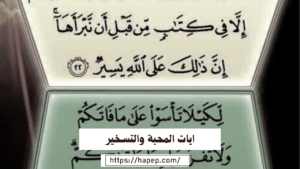 إِلَّا فِي كِتَٰبٍ مِّن قَبْلِ أَن نَّبْرَأَهَآ ۚ
إِنَّ ذَٰلِكَ عَلَى ٱللَّهِ يَسِيرٌ ٢٢
لِّكَيْلَا تَأْسَوْا۟ عَلَىٰ مَا فَاتَكُمْ
ايات المحبة والتسخير
https://hapep.com/